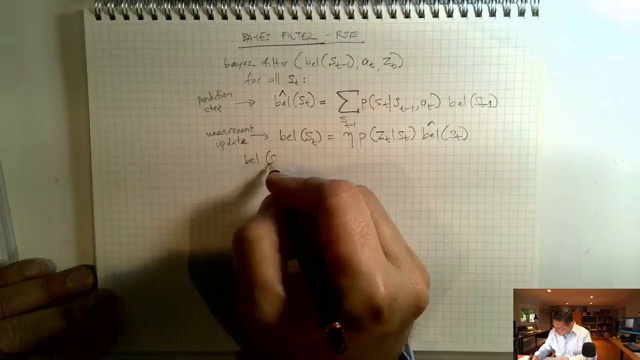 BAYES FILTER - RSE
bayes filter (bel(St-1), at, Zt)
for all St:
prediction step → b̂el(St) = ∑St-1 p(St|St-1, at) bel(St-1)
measurement update → bel(St) = η p(Zt|St) b̂el(St)
bel (S